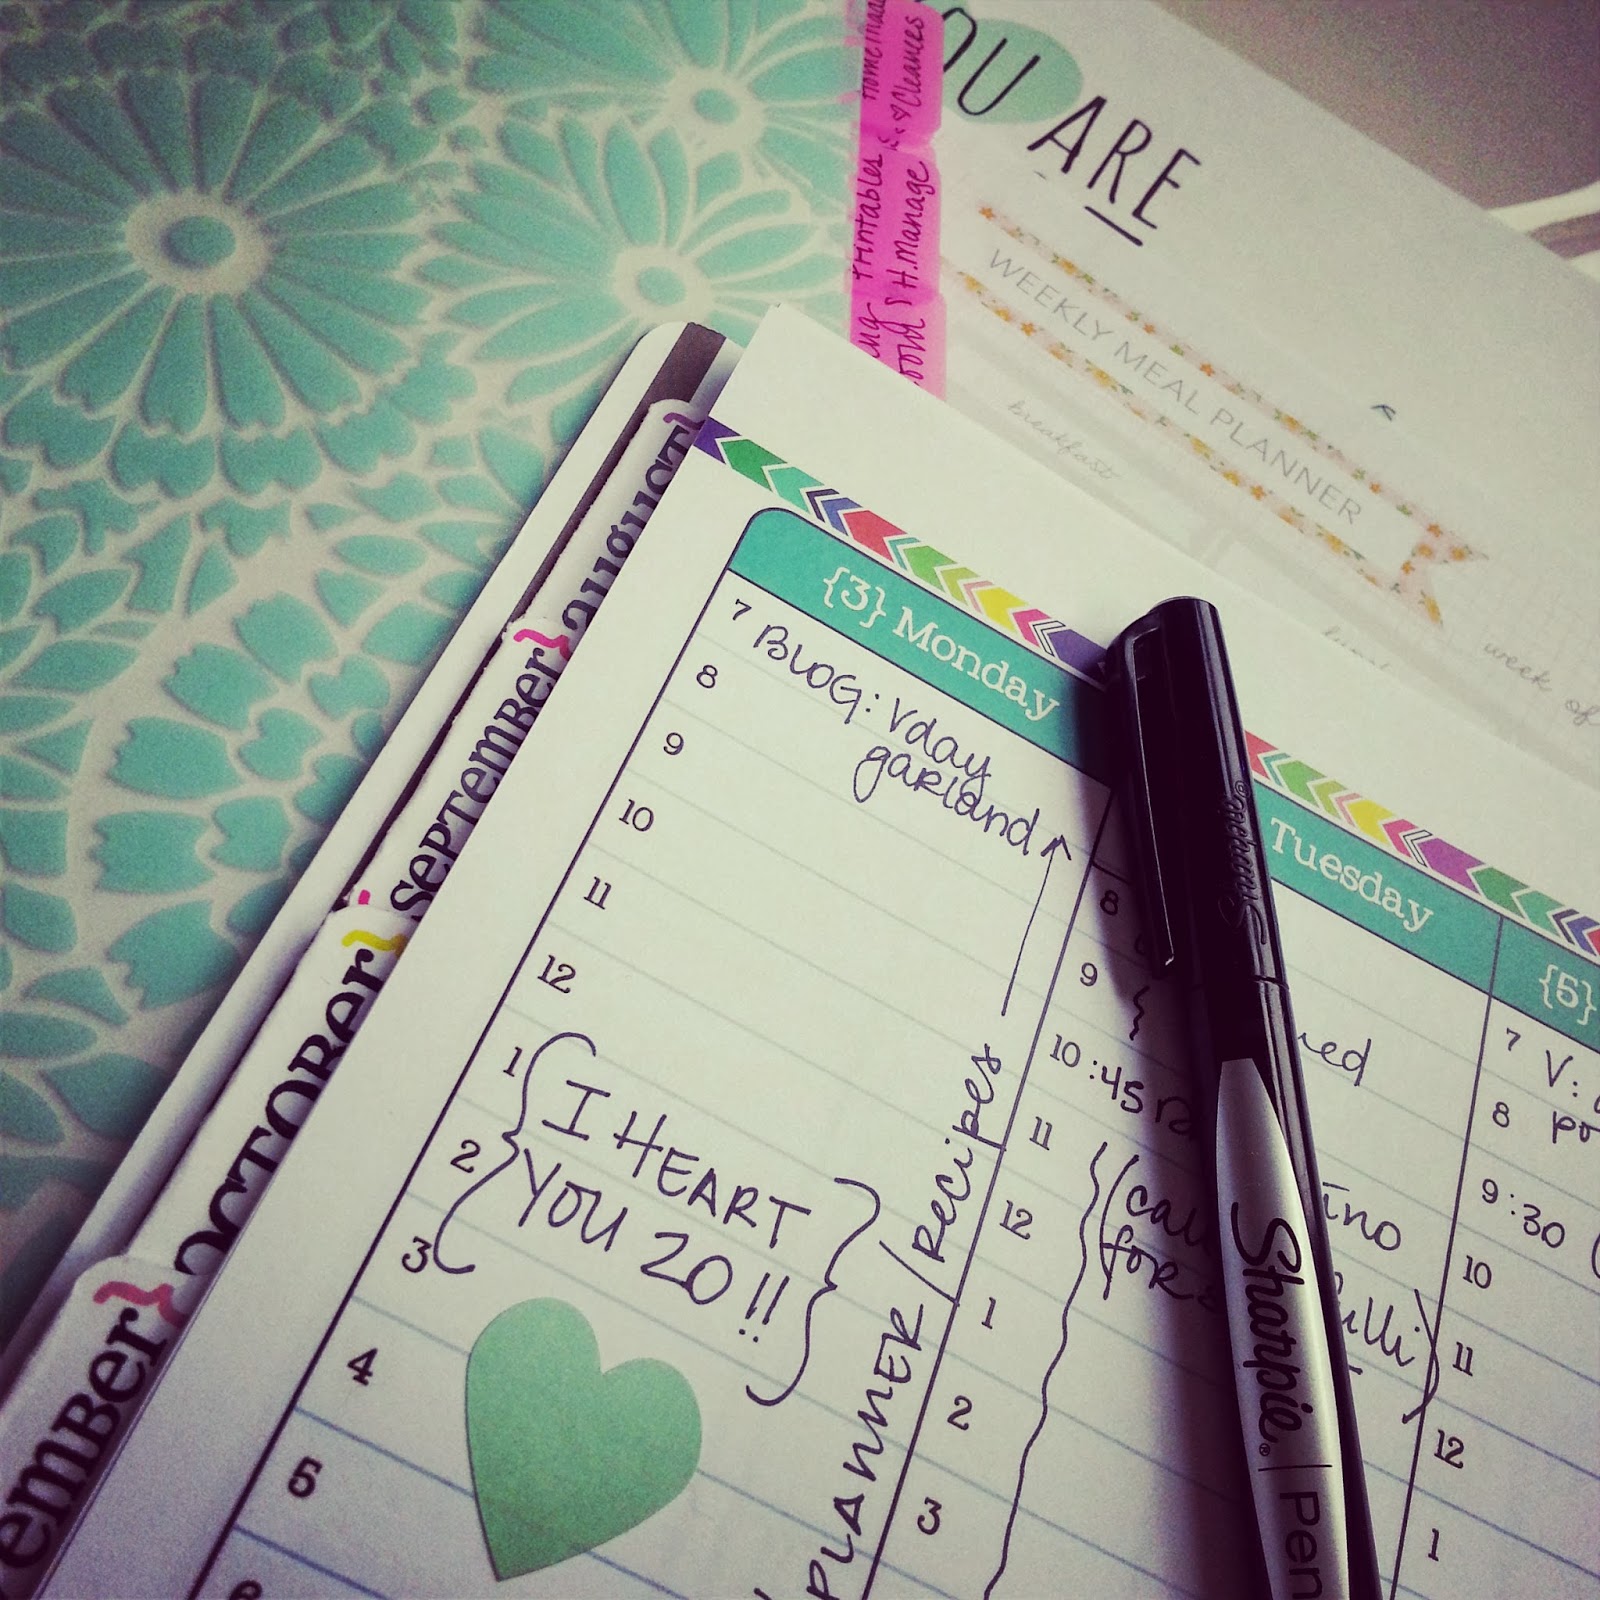 OU ARE
Cleanses
Printables
H. Manage
WEEKLY MEAL PLANNER
breakfast
week of
AUGUST}
SEPTEMBER}
OCTOBER}
EMBER}
{3} Monday
7 BLOG: Vday
garland
8
9
10
11
12
1
2
3
I HEART
YOU 20!!
4
5
PLANNER/recipes
Tuesday
8
9
10:45
11
12
for
1
2
3
{5}
7 V:
8
9:30
10
11
12
1
Sharpie®
Sharpie® | Pen